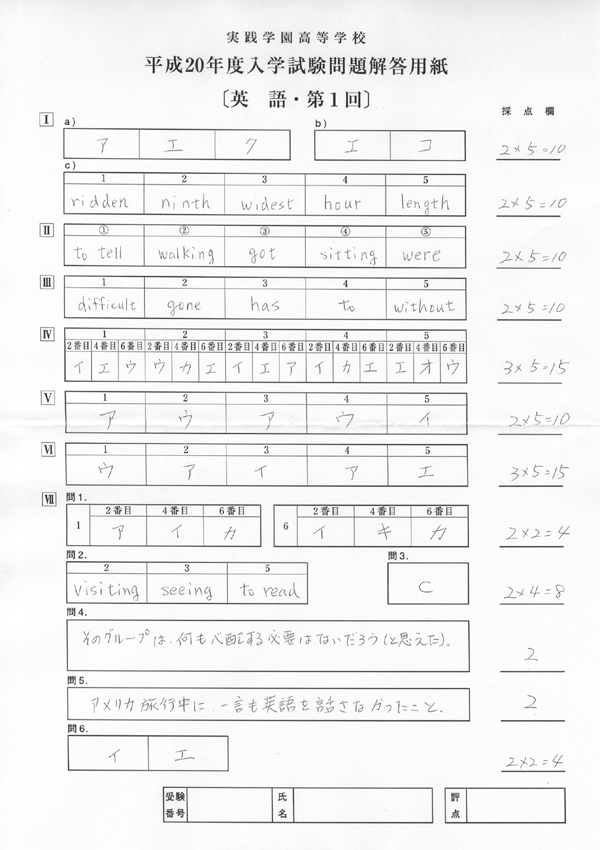 実践学園高等学校
平成20年度入学試験問題解答用紙
〔英 語・第1回〕
採 点 欄
I a) b)
ア エ ク エ コ 2×5=10
c)
1 2 3 4 5
ridden ninth widest hour length 2×5=10
II ① ② ③ ④ ⑤
to tell walking got sitting were 2×5=10
III 1 2 3 4 5
difficult gone has to without 2×5=10
IV 1 2 3 4 5
2番目 4番目 6番目 2番目 4番目 6番目 2番目 4番目 6番目 2番目 4番目 6番目 2番目 4番目 6番目
イ エ ウ ウ カ エ イ エ ア イ カ エ エ オ ウ 3×5=15
V 1 2 3 4 5
ア ウ ア ウ イ 2×5=10
VI 1 2 3 4 5
ウ ア イ ア エ 3×5=15
VII 問1.
1 2番目 4番目 6番目 6 2番目 4番目 6番目
ア イ カ イ キ カ 2×2=4
問2. 問3.
2 3 5
visiting seeing to read C 2×4=8
問4.
そのグループは、何も心配する必要はないだろう(と思えた)。 2
問5.
アメリカ旅行中に、一言も英語を話さなかったこと。 2
問6.
イ エ 2×2=4
受験番号 氏名 評点